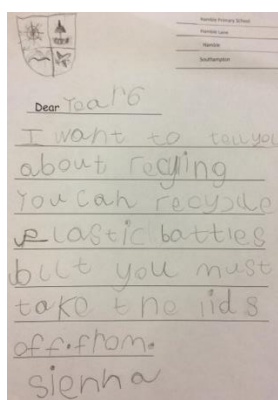 Hamble Primary School
Hamble Lane
Hamble
Southampton
Dear Year 6
I want to tellyou
about recying
You can recycle
plastic battles
but you must
take the lids
off. from.
sienna